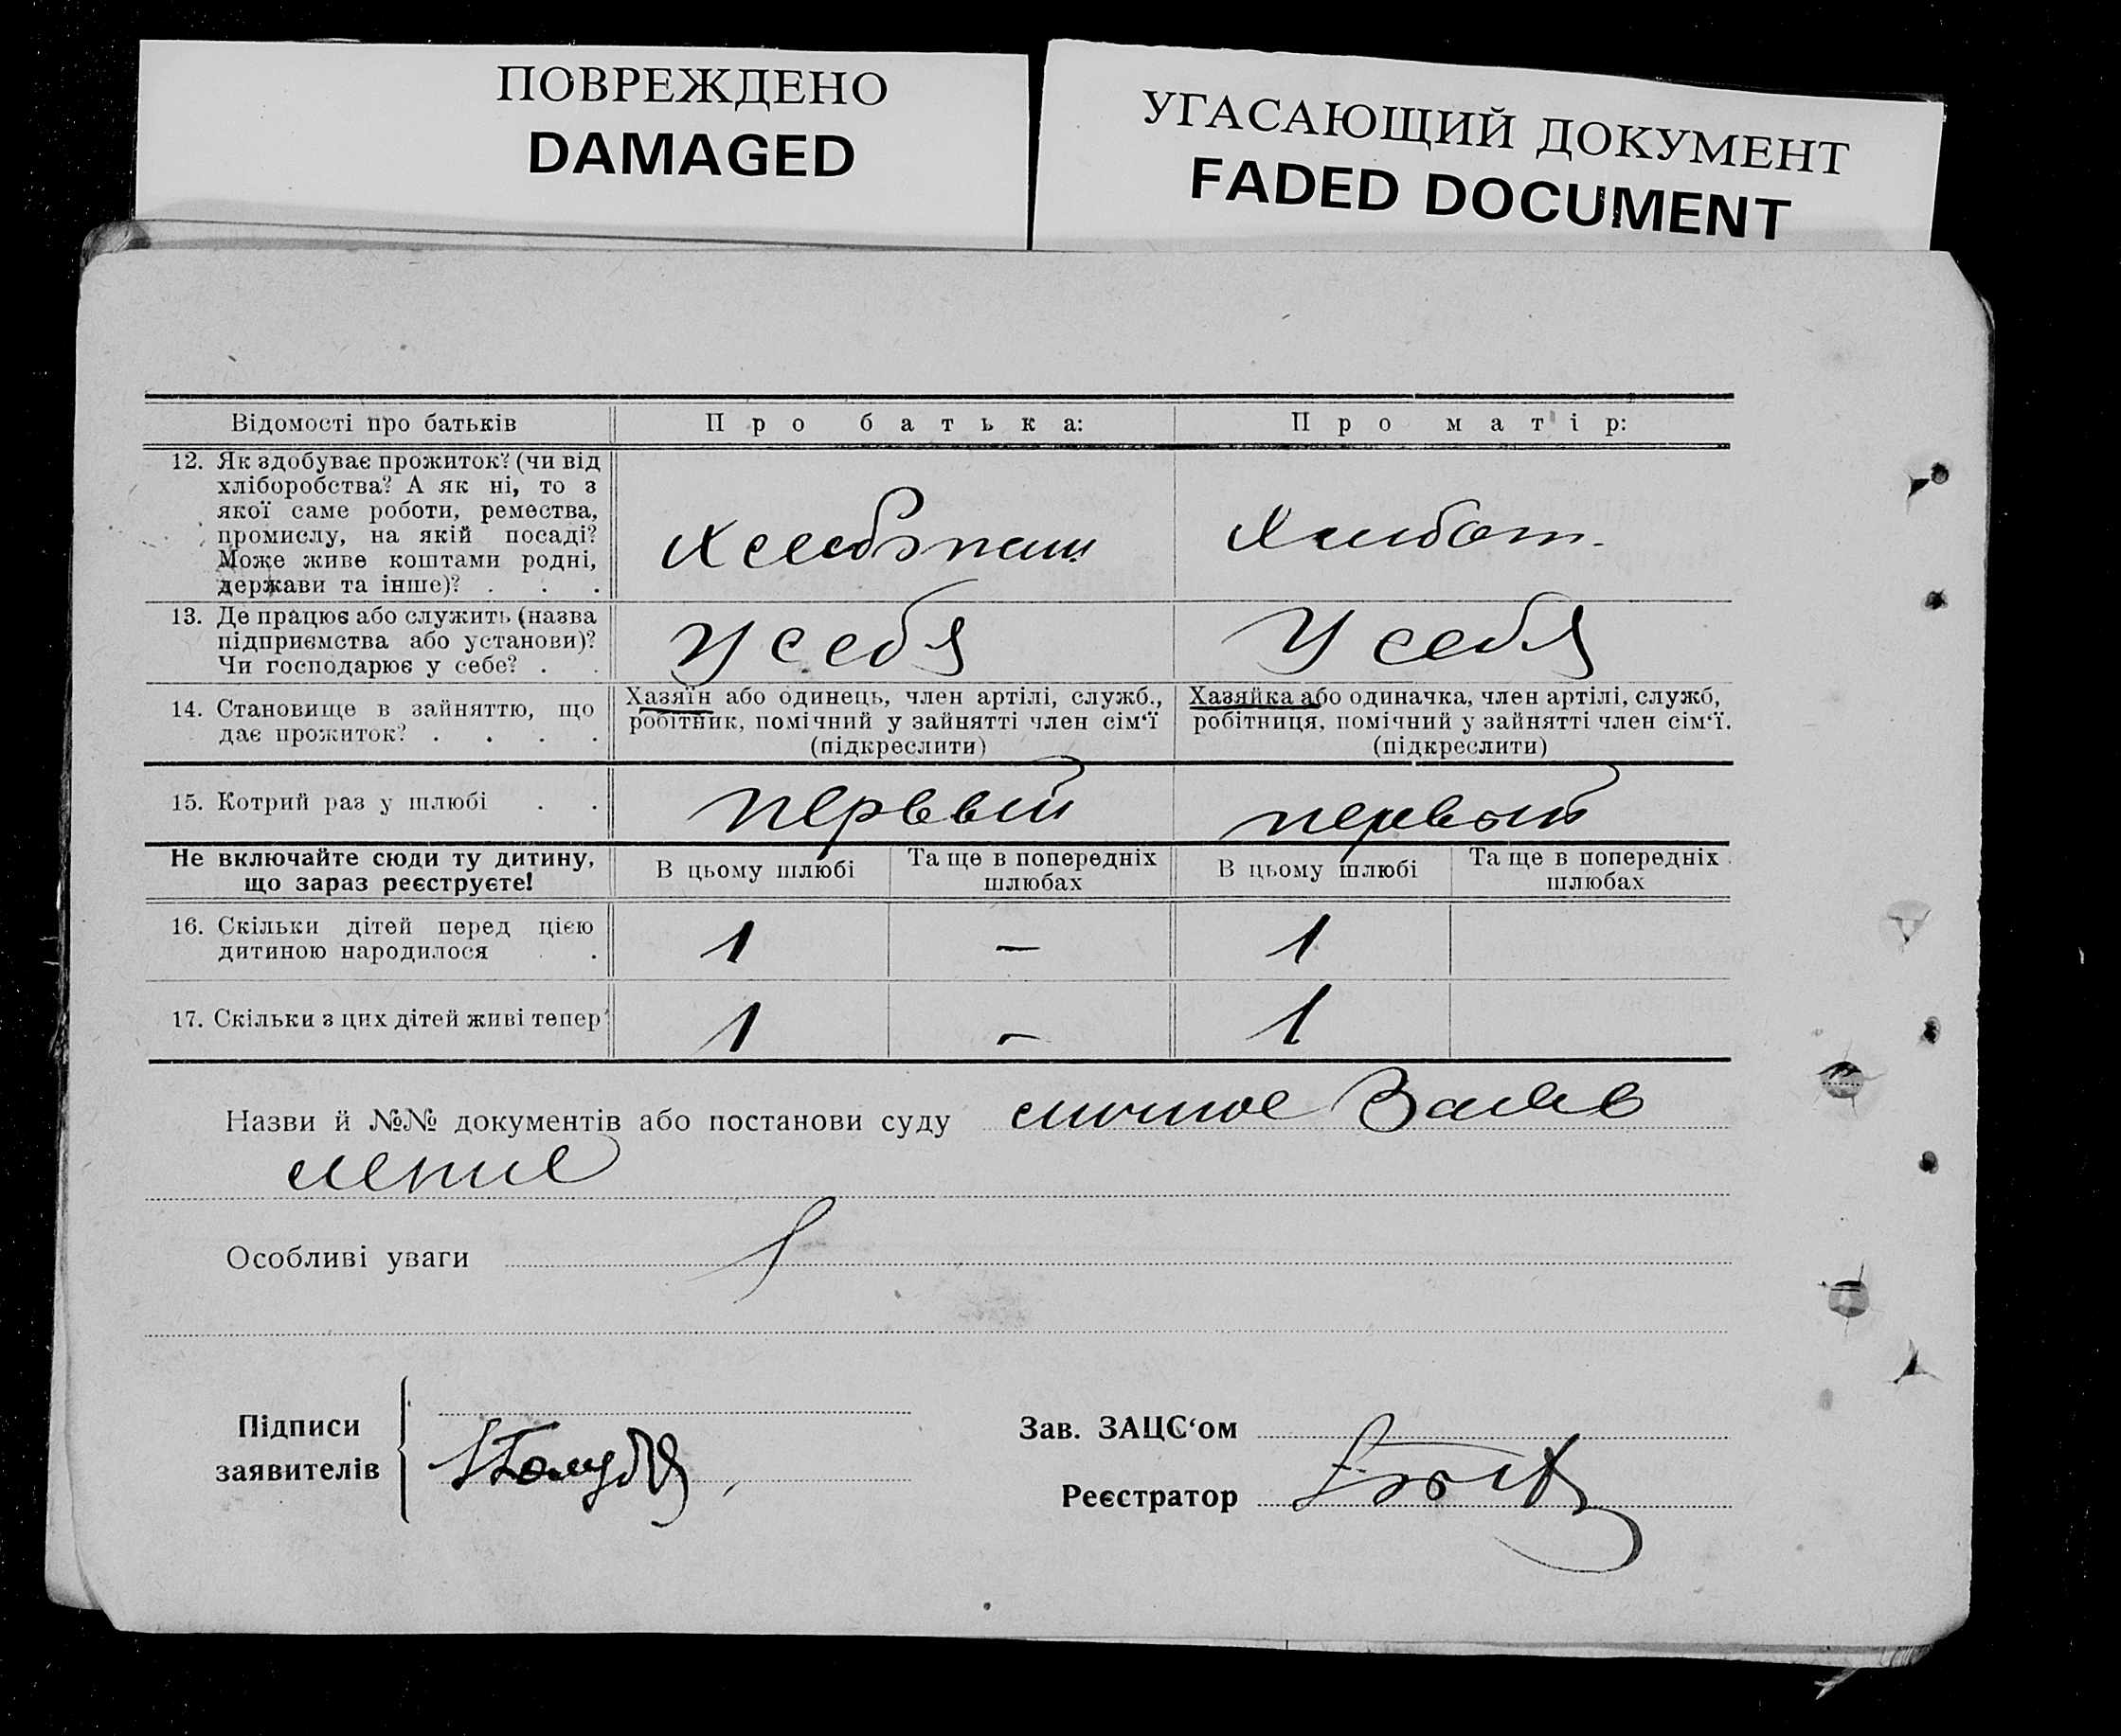 ПОВРЕЖДЕНО
DAMAGED
УГАСАЮЩИЙ ДОКУМЕНТ
FADED DOCUMENT
Відомості про батьків
Про батька:
Про матір:
12. Як здобуває прожиток? (чи від
хліборобства? А як ні, то з
якої саме роботи, ремества,
промислу, на якій посаді?
Може живе коштами родні,
держави та інше)? . . .
13. Де працює або служить (назва
підприємства або установи)?
Чи господарює у себе? . .
У себя
У себя
14. Становище в зайняттю, що
дає прожиток? . . . .
Хазяїн або одинець, член артілі, служб.,
робітник, помічний у зайнятті член сім'ї
(підкреслити)
Хазяйка або одиначка, член артілі, служб,
робітниця, помічний у зайнятті член сім'ї.
(підкреслити)
15. Котрий раз у шлюбі . .
первый
первый
Не включайте сюди ту дитину,
що зараз реєструєте!
В цьому шлюбі
Та ще в попередніх
шлюбах
В цьому шлюбі
Та ще в попередніх
шлюбах
16. Скільки дітей перед цією
дитиною народилося .
1
—
1
17. Скільки з цих дітей живі тепер
1
—
1
Назви й №№ документів або постанови суду личное Заяв
ление
Особливі уваги
Підписи
заявителів
Зав. ЗАЦС'ом
Реєстратор